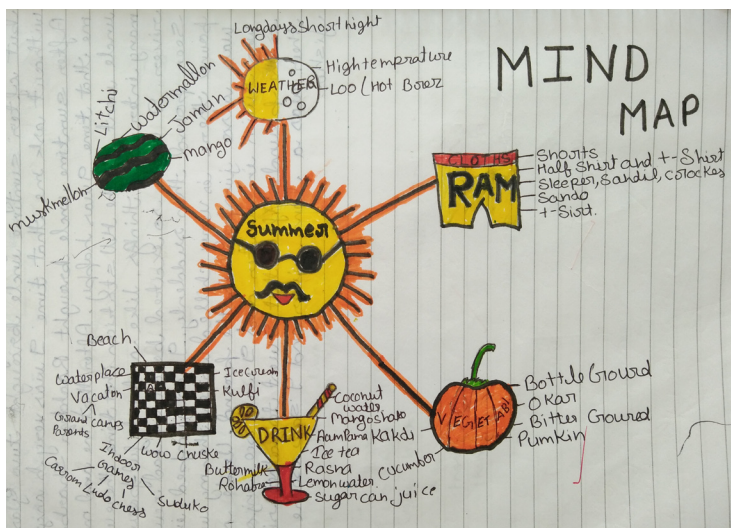 MIND
MAP
Long days Short night
WEATHER
High temperature
Loo / Hot Borer
Litchi
Watermallon
Jamun
mango
muskmellon
CLOTHS
RAM
Shorts
Half Shirt and +- Shirt
Sleeper, Sandil, corockes
Sando
+-Sirt.
Summer
Beach
Waterplace
Vacation
Grand Parents
camps
Icecream
Kulfi
wow chuske
Indoor
Games
Carrom
Ludo
chess
Suduko
DRINK
Coconut
water
Mangoshake
Aam Pana
Ice tea
Rasna
Lemon water
Sugar can juice
Buttermilk
VEGETAB
Bottle Gourd
Okar
Bitter Goured
Pumkin
Kakdi
Cucumber